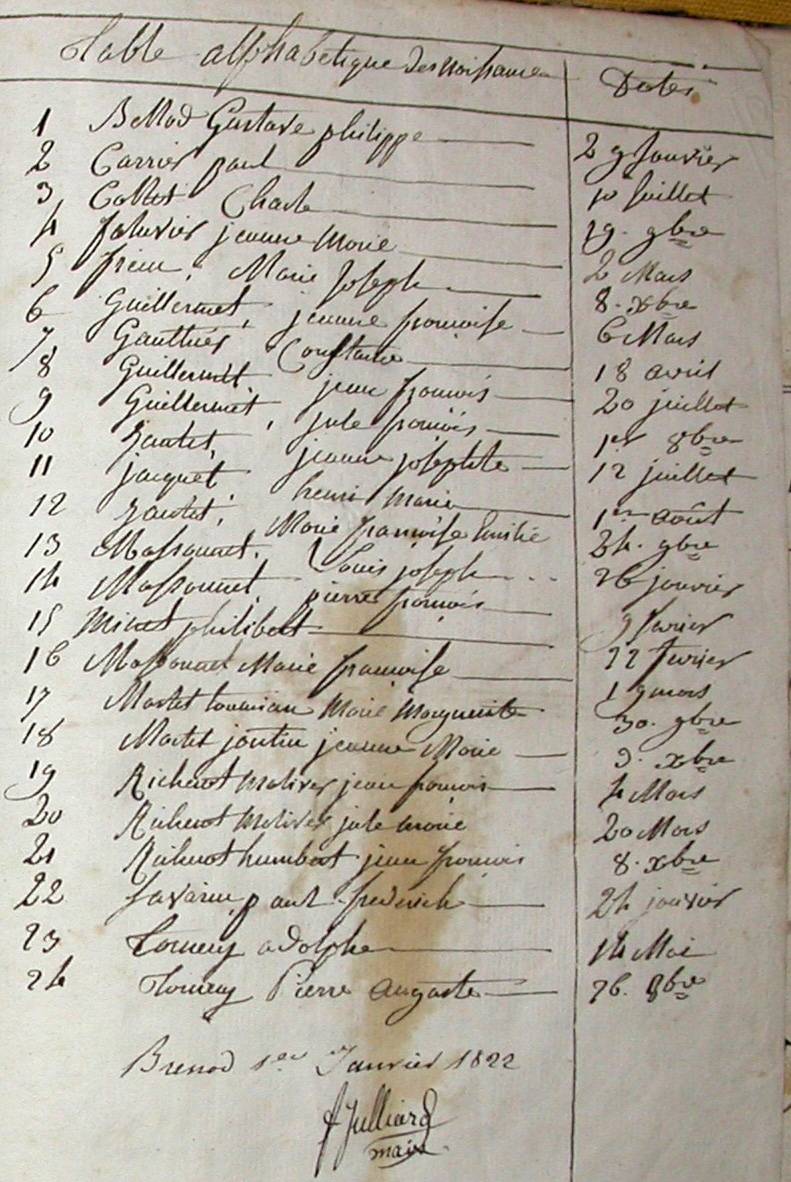 Table alphabétique des naissances Dates
1 Bellod Gustave philippe 29 Janvier
2 Carrier paul 10 Juillet
3 Collet Charle 19. 9bre
4 jeanne Marie 2 Mars
5 Marie Joseph 8. xbre
6 Guillermet, jeanne françoise 6 Mars
7 Gauthier Constance 18 avril
8 Guillermet jean françois 20 juillet
9 Guillermet, jule françois 1er 8bre
10 jeanne josephte 12 juillet
11 jacquet henri Marie 1er août
12 Marie françoise Emilie 24. 9bre
13 Massonnet. Louis joseph 26 janvier
14 Massonnet pierre françois 9 fevrier
15 Miet philibert 22 fevrier
16 Massonnet Marie françoise 19 mars
17 Martet Marie Marguerite 30. 9bre
18 Martet jeanne Marie 9. xbre
19 Richerot Molives jean françois 4 Mars
20 Richerot Molives jule marie 20 Mars
21 Richerot humbert jean françois 8. xbre
22 Savarin paul frederick 24 janvier
23 Tornery adolphe 14 Mai
24 Tornery Pierre Auguste 26. 8bre
Brenod 1er Janvier 1822
f Julliard
maire